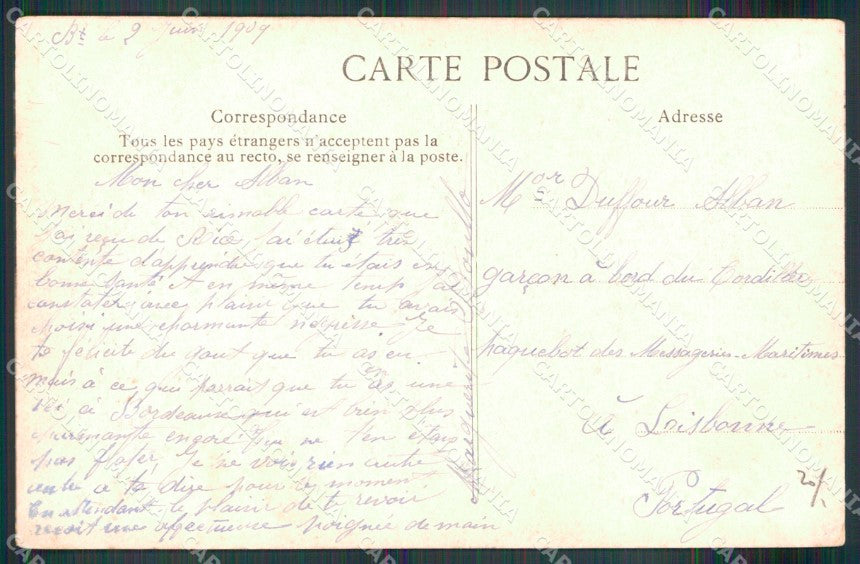 Bx le 2 Juin 1909
CARTE POSTALE
Correspondance
Tous les pays étrangers n'acceptent pas la
correspondance au recto, se renseigner à la poste.
Mon cher Alban
Merci de ton aimable carte que
j'ai reçu de Nice, j'ai été très
contente d'apprendre que tu étais en
bonne santé et en même temp j'ai
constaté avec plaisir que tu avais
choisi une charmante Niçoise. Je
te félicite du gout que tu as eu
mais à ce qui parrait que tu as une
à Bordeaux qui est bien plus
charmante encore
pas Je ne vois rien autre
a te dire pour le moment.
En attendant le plaisir de te revoir
reçoit une affectueuse poignée de main
Marguerite
Adresse
Mor Duffour Alban
garçon à bord du Cordillère
paquebot des Messageries-Maritimes
à Lisbonne
Portugal
CARTOLINOMANIA